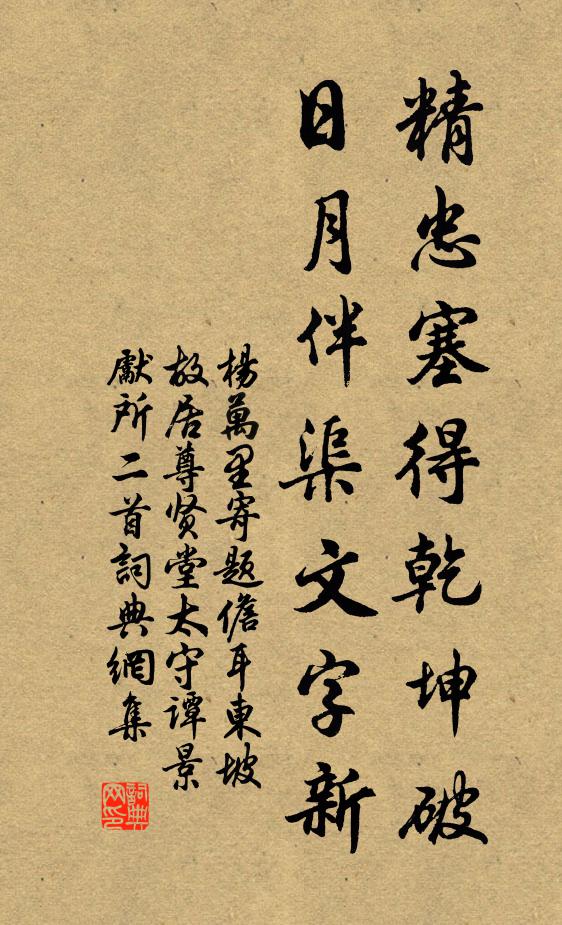 精忠塞得乾坤破
日月伴渠文字新
楊萬里寄題儋耳東坡
故居尊贤堂太守谭景
獻所二首詞典網集
詞典
网印